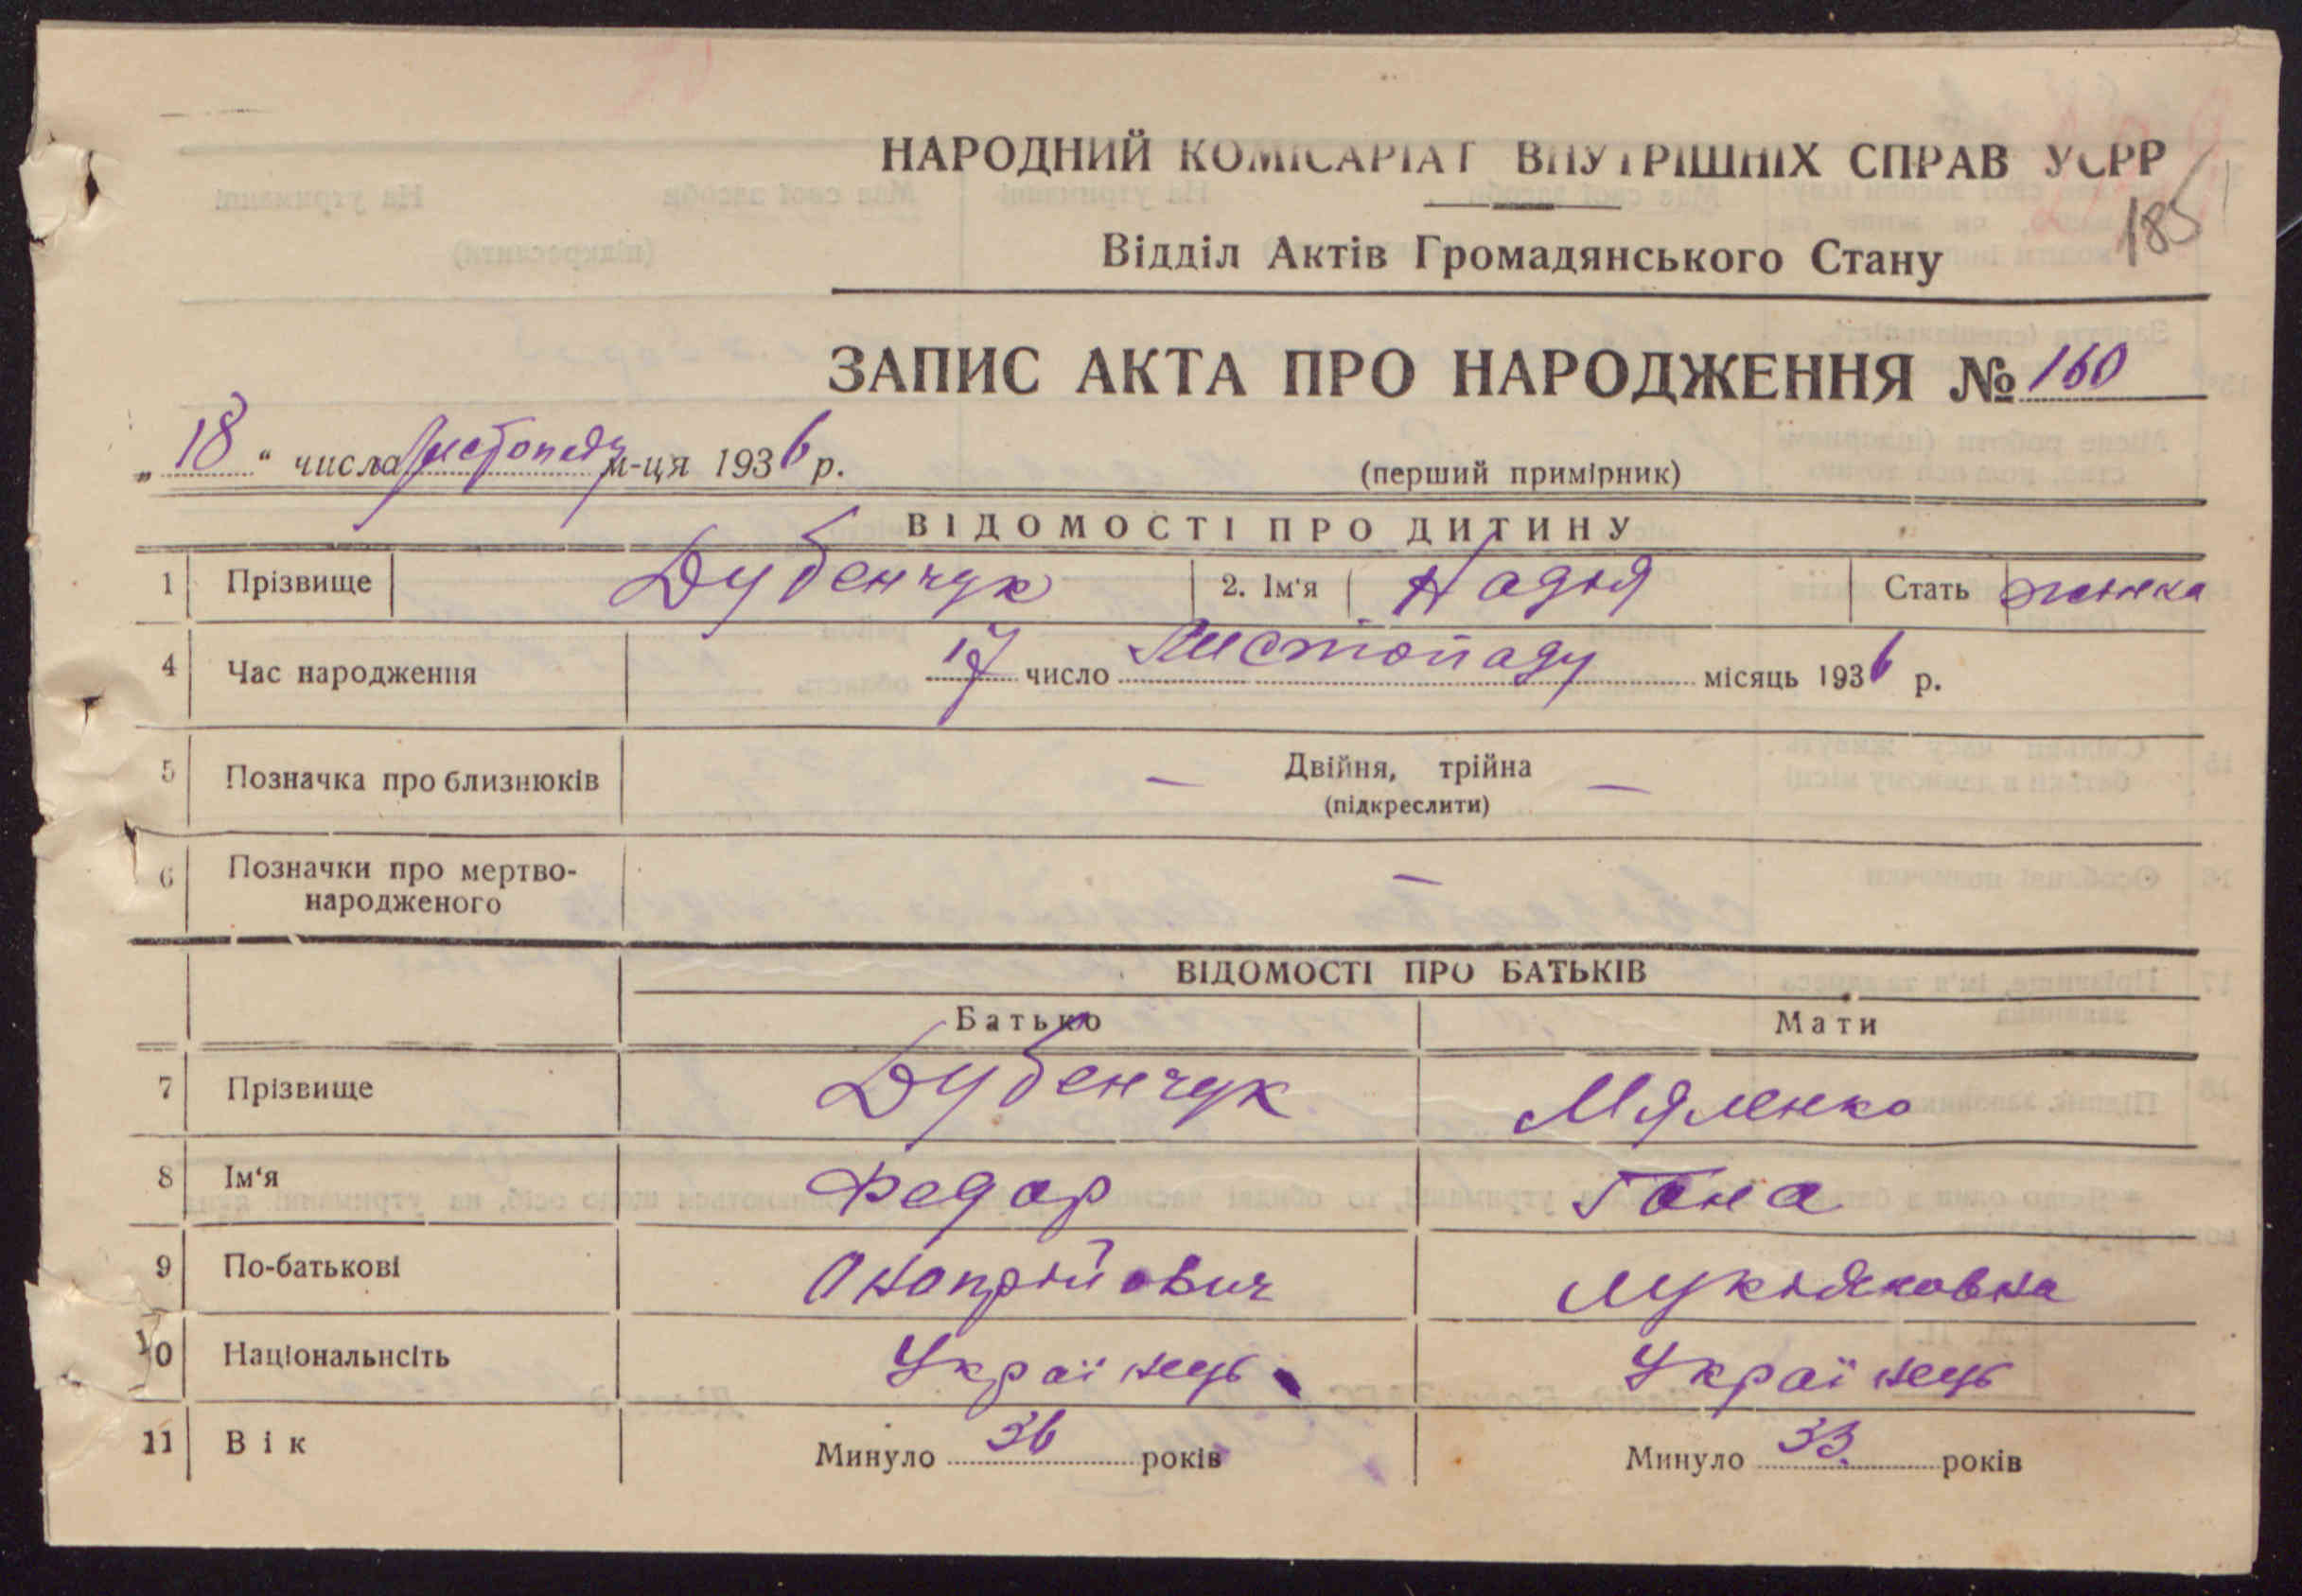 НАРОДНИЙ КОМІСАРІАТ ВНУТРІШНІХ СПРАВ УСРР
185
Відділ Актів Громадянського Стану
ЗАПИС АКТА ПРО НАРОДЖЕННЯ № 160
„18“ числа листопаду м-ця 1936 р.
(перший примірник)
ВІДОМОСТІ ПРО ДИТИНУ
1 Прізвище Дубенчук 2. Ім‘я Надія Стать жінка
4 Час народження 17 число Листопаду місяць 1936 р.
5 Позначка про близнюків — Двійня, трійна —
(підкреслити)
6 Позначки про мертво-
народженого —
ВІДОМОСТІ ПРО БАТЬКІВ
Батько Мати
7 Прізвище Дубенчук Мяленко
8 Ім‘я Федор Гана
9 По-батькові Онопрійович Лукіяновна
10 Національнсіть Українець Українець
11 Вік Минуло 36 років Минуло 33 років